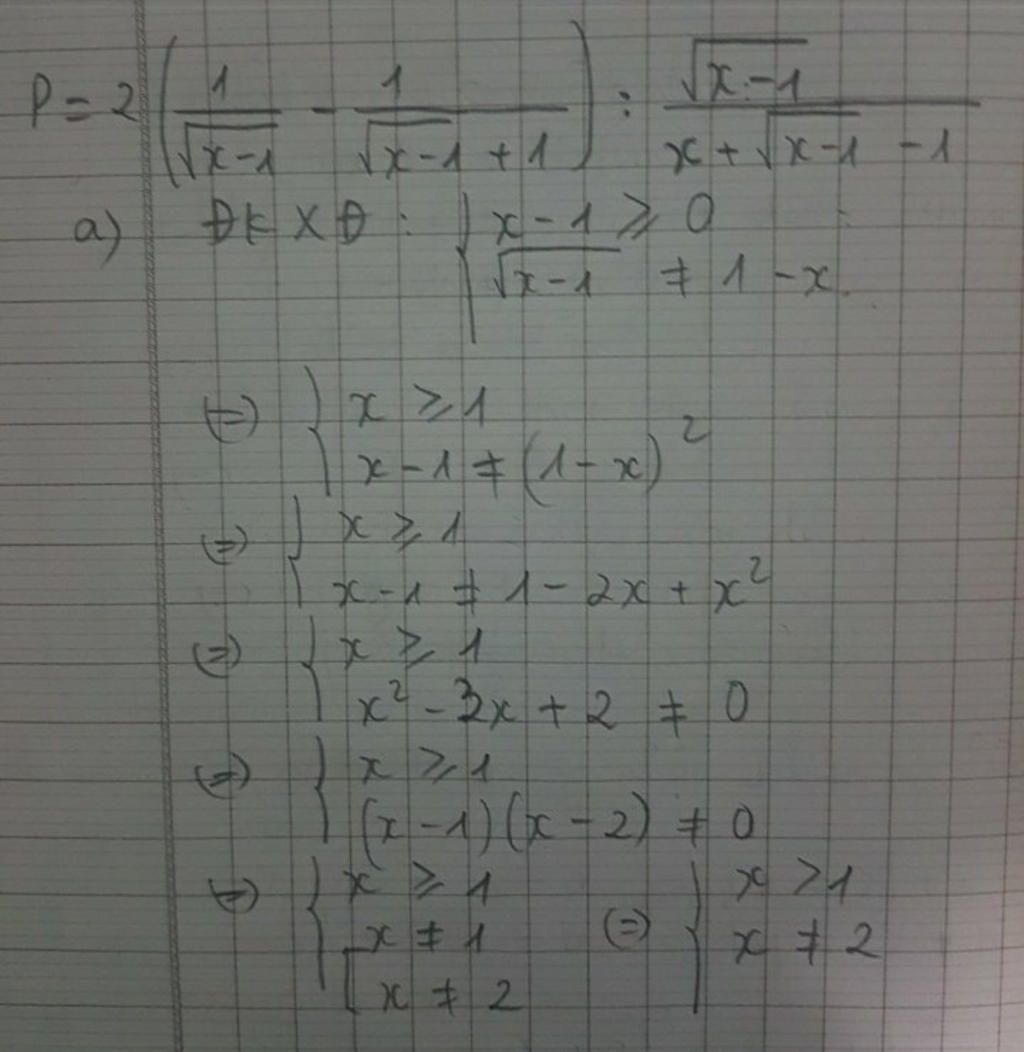 P = 2 ( 1/√(x-1) - 1/(√(x-1) + 1) ) : √(x-1)/(x + √(x-1) - 1)
a) ĐKXĐ : { x - 1 ⩾ 0
√(x-1) ≠ 1 - x
(=) { x ⩾ 1
x - 1 ≠ (1 - x)²
(=) { x ⩾ 1
x - 1 ≠ 1 - 2x + x²
(=) { x ⩾ 1
x² - 3x + 2 ≠ 0
(=) { x ⩾ 1
(x - 1)(x - 2) ≠ 0
(=) { x ⩾ 1
[ x ≠ 1
x ≠ 2
(=) { x > 1
x ≠ 2